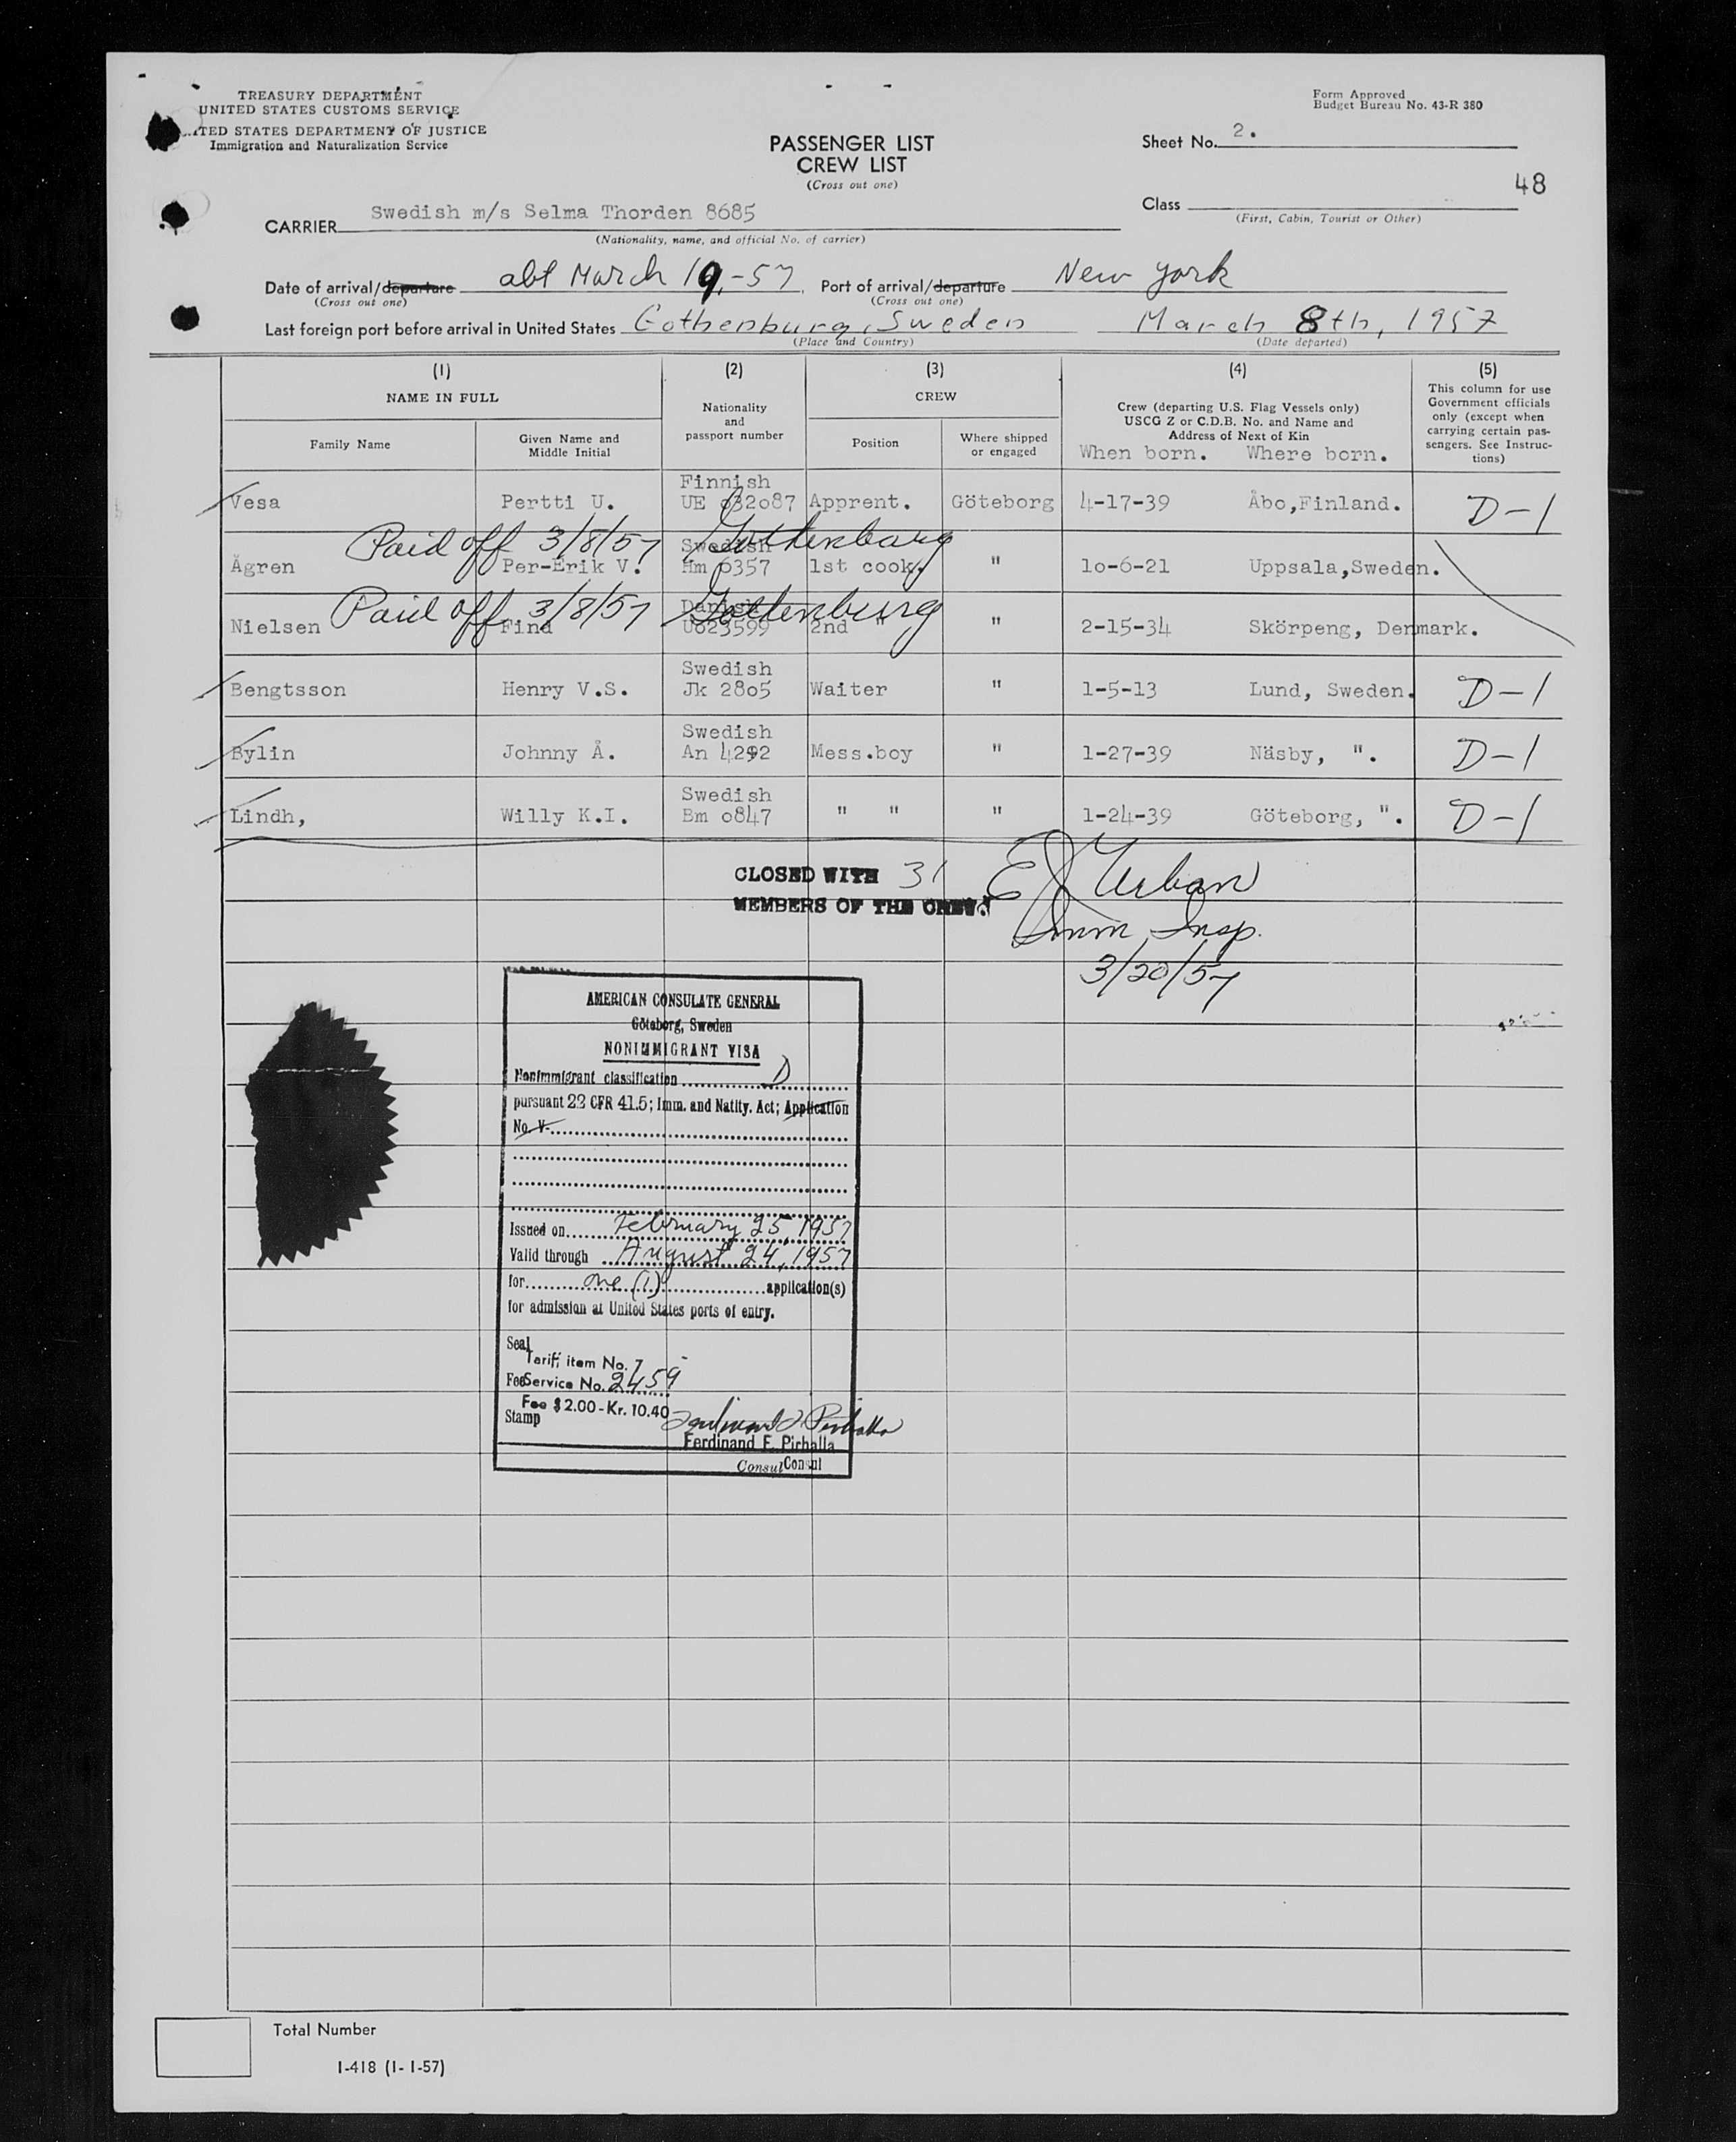 TREASURY DEPARTMENT
UNITED STATES CUSTOMS SERVICE
UNITED STATES DEPARTMENT OF JUSTICE
Immigration and Naturalization Service
Form Approved
Budget Bureau No. 43-R 380
PASSENGER LIST
CREW LIST
(Cross out one)
Sheet No. 2.
48
Class
(First, Cabin, Tourist or Other)
CARRIER Swedish m/s Selma Thorden 8685
(Nationality, name, and official No. of carrier)
Date of arrival/departure abt March 19,-57 Port of arrival/departure New York
(Cross out one) (Cross out one)
Last foreign port before arrival in United States Gothenburg, Sweden March 8th, 1957
(Place and Country) (Date departed)
(1) (2) (3) (4) (5)
NAME IN FULL
Family Name
Given Name and
Middle Initial
Nationality
and
passport number
CREW
Position
Where shipped
or engaged
Crew (departing U.S. Flag Vessels only)
USCG Z or C.D.B. No. and Name and
Address of Next of Kin
When born. Where born.
This column for use
Government officials
only (except when
carrying certain pas-
sengers. See Instruc-
tions)
Finnish
Vesa Pertti U. UE 032087 Apprent. Göteborg 4-17-39 Åbo,Finland. D-1
Paid off 3/8/57 Gothenburg
Swedish
Ågren Per-Erik V. Hm 6357 1st cook. " 10-6-21 Uppsala,Sweden.
Paid off 3/8/57 Gothenburg
Danish
Nielsen Find U623599 2nd " " 2-15-34 Skörpeng, Denmark.
Swedish
Bengtsson Henry V.S. Jk 2805 Waiter " 1-5-13 Lund, Sweden. D-1
Swedish
Bylin Johnny Å. An 4292 Mess.boy " 1-27-39 Näsby, ". D-1
Swedish
Lindh, Willy K.I. Bm 0847 " " " 1-24-39 Göteborg, ". D-1
CLOSED WITH 31
MEMBERS OF THE CREW.
E J Urban
Imm Insp.
3/20/57
AMERICAN CONSULATE GENERAL
Göteborg, Sweden
NONIMMIGRANT VISA
Nonimmigrant classification D
pursuant 22 CFR 41.5; Imm. and Natlty. Act; Application
No. V-
Issued on February 25, 1957
Valid through August 24, 1957
for one (1) application(s)
for admission at United States ports of entry.
Seal
Tariff item No. 7
Fee Service No. 2459
Fee $2.00-Kr. 10.40
Stamp
Ferdinand F. Pirhalla
Ferdinand F. Pirhalla
Consul Consul
Total Number
I-418 (1-1-57)